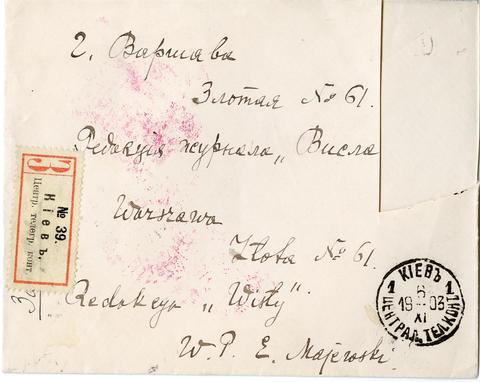 г. Варшава
Злотая № 61.
Редакція журнала „Висла
Warszawa
Złota № 61.
Redakcya „Wisły".
W. P. E. Majewski
З
№ 39.
Кіевъ.
Центр. телегр. конт.
КІЕВЪ
1 6 1
19 03
XI
ЦЕНТРАЛ. ТЕЛ. КОНТ.